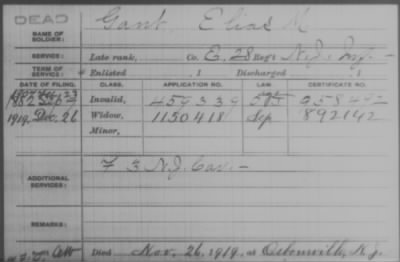 DEAD
Gant, Elias M
NAME OF SOLDIER:
SERVICE: Late rank, Co. E, 28 Reg't N.J. Inf.
TERM OF SERVICE: Enlisted , 1 Discharged , 1
DATE OF FILING. CLASS. APPLICATION NO. LAW CERTIFICATE NO.
1882 Invalid, 459339 958492
1919, Dec. 26 Widow, 1150418 Sep 892142
Minor,
ADDITIONAL SERVICES: F 3 N.J. Cav.
REMARKS:
Died Nov. 26, 1919, at Osbornville, N.J.